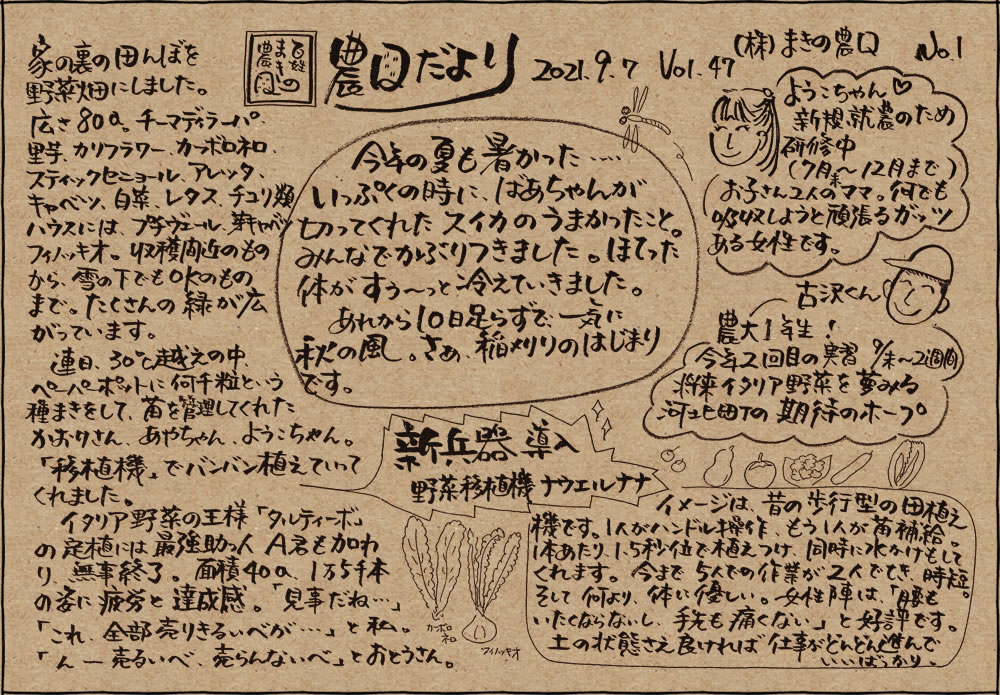 農Qだより
2021.9.7 Vol.47
(株)まきの農Q
No.1
百姓
まきの
農Q
家の裏の田んぼを
野菜畑にしました。
広さ80a。チーマディラーパ、
里芋、カリフラワー、カーボロネロ、
スティックセニョール、アレッタ、
キャベツ、白菜、レタス、チコリ類
ハウスには、プチヴェール、芽キャベツ
フィノッキオ。収穫間近のもの
から、雪の下でもOKのもの
まで。たくさんの緑が広
がっています。
連日、30℃越えの中、
ペーパーポットに何千粒という
種まきをして、苗を管理してくれた
かおりさん、あやちゃん、ようこちゃん。
「移植機」でバンバン植えていって
くれました。
イタリア野菜の王様「タルティーボ」
の定植には最強助っ人A君も加わ
り、無事終了。面積40a、1万5千本
の姿に疲労と達成感。「見事だね…」
「これ、全部売りきるいべが…」と私。
「んー売るいべ、売らんないべ」とおとうさん。
今年の夏も暑かった……
いっぷくの時に、ばあちゃんが
切ってくれたスイカのうまかったこと。
みんなでかぶりつきました。ほてった
体がすぅ〜っと冷えていきました。
あれから10日足らずで、一気に
秋の風。さぁ、稲刈りのはじまり
です。
ようこちゃん♡
新規就農のため
研修中
(7月末〜12月まで)
お子さん2人のママ。何でも
吸収しようと頑張るガッツ
ある女性です。
古沢くん
農大1年生!
今年2回目の実習 9/末〜2週間
将来イタリア野菜を夢みる
河北町の期待のホープ
新兵器導入
野菜移植機ナウエルナナ
イメージは、昔の歩行型の田植え
機です。1人がハンドル操作、もう1人が苗補給。
1本あたり、1.5秒位で植えつけ、同時に水かけもして
くれます。今まで5人での作業が2人ででき、時短。
そして何より、体に優しい。女性陣は、「腰も
いたくならないし、手先も痛くない」と好評です。
土の状態さえ良ければ仕事がどんどん進んで
いいばっかり。
カーボロ
ネロ
フィノッキオ